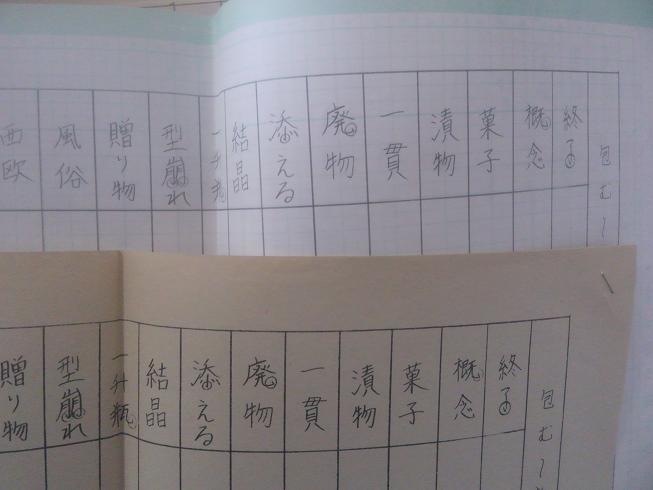 包む～
終る
概念
菓子
漬物
一貫
廃物
添える
結晶
一升瓶
型崩れ
贈り物
風俗
西欧
包む～
終る
概念
菓子
漬物
一貫
廃物
添える
結晶
一升瓶
型崩れ
贈り物